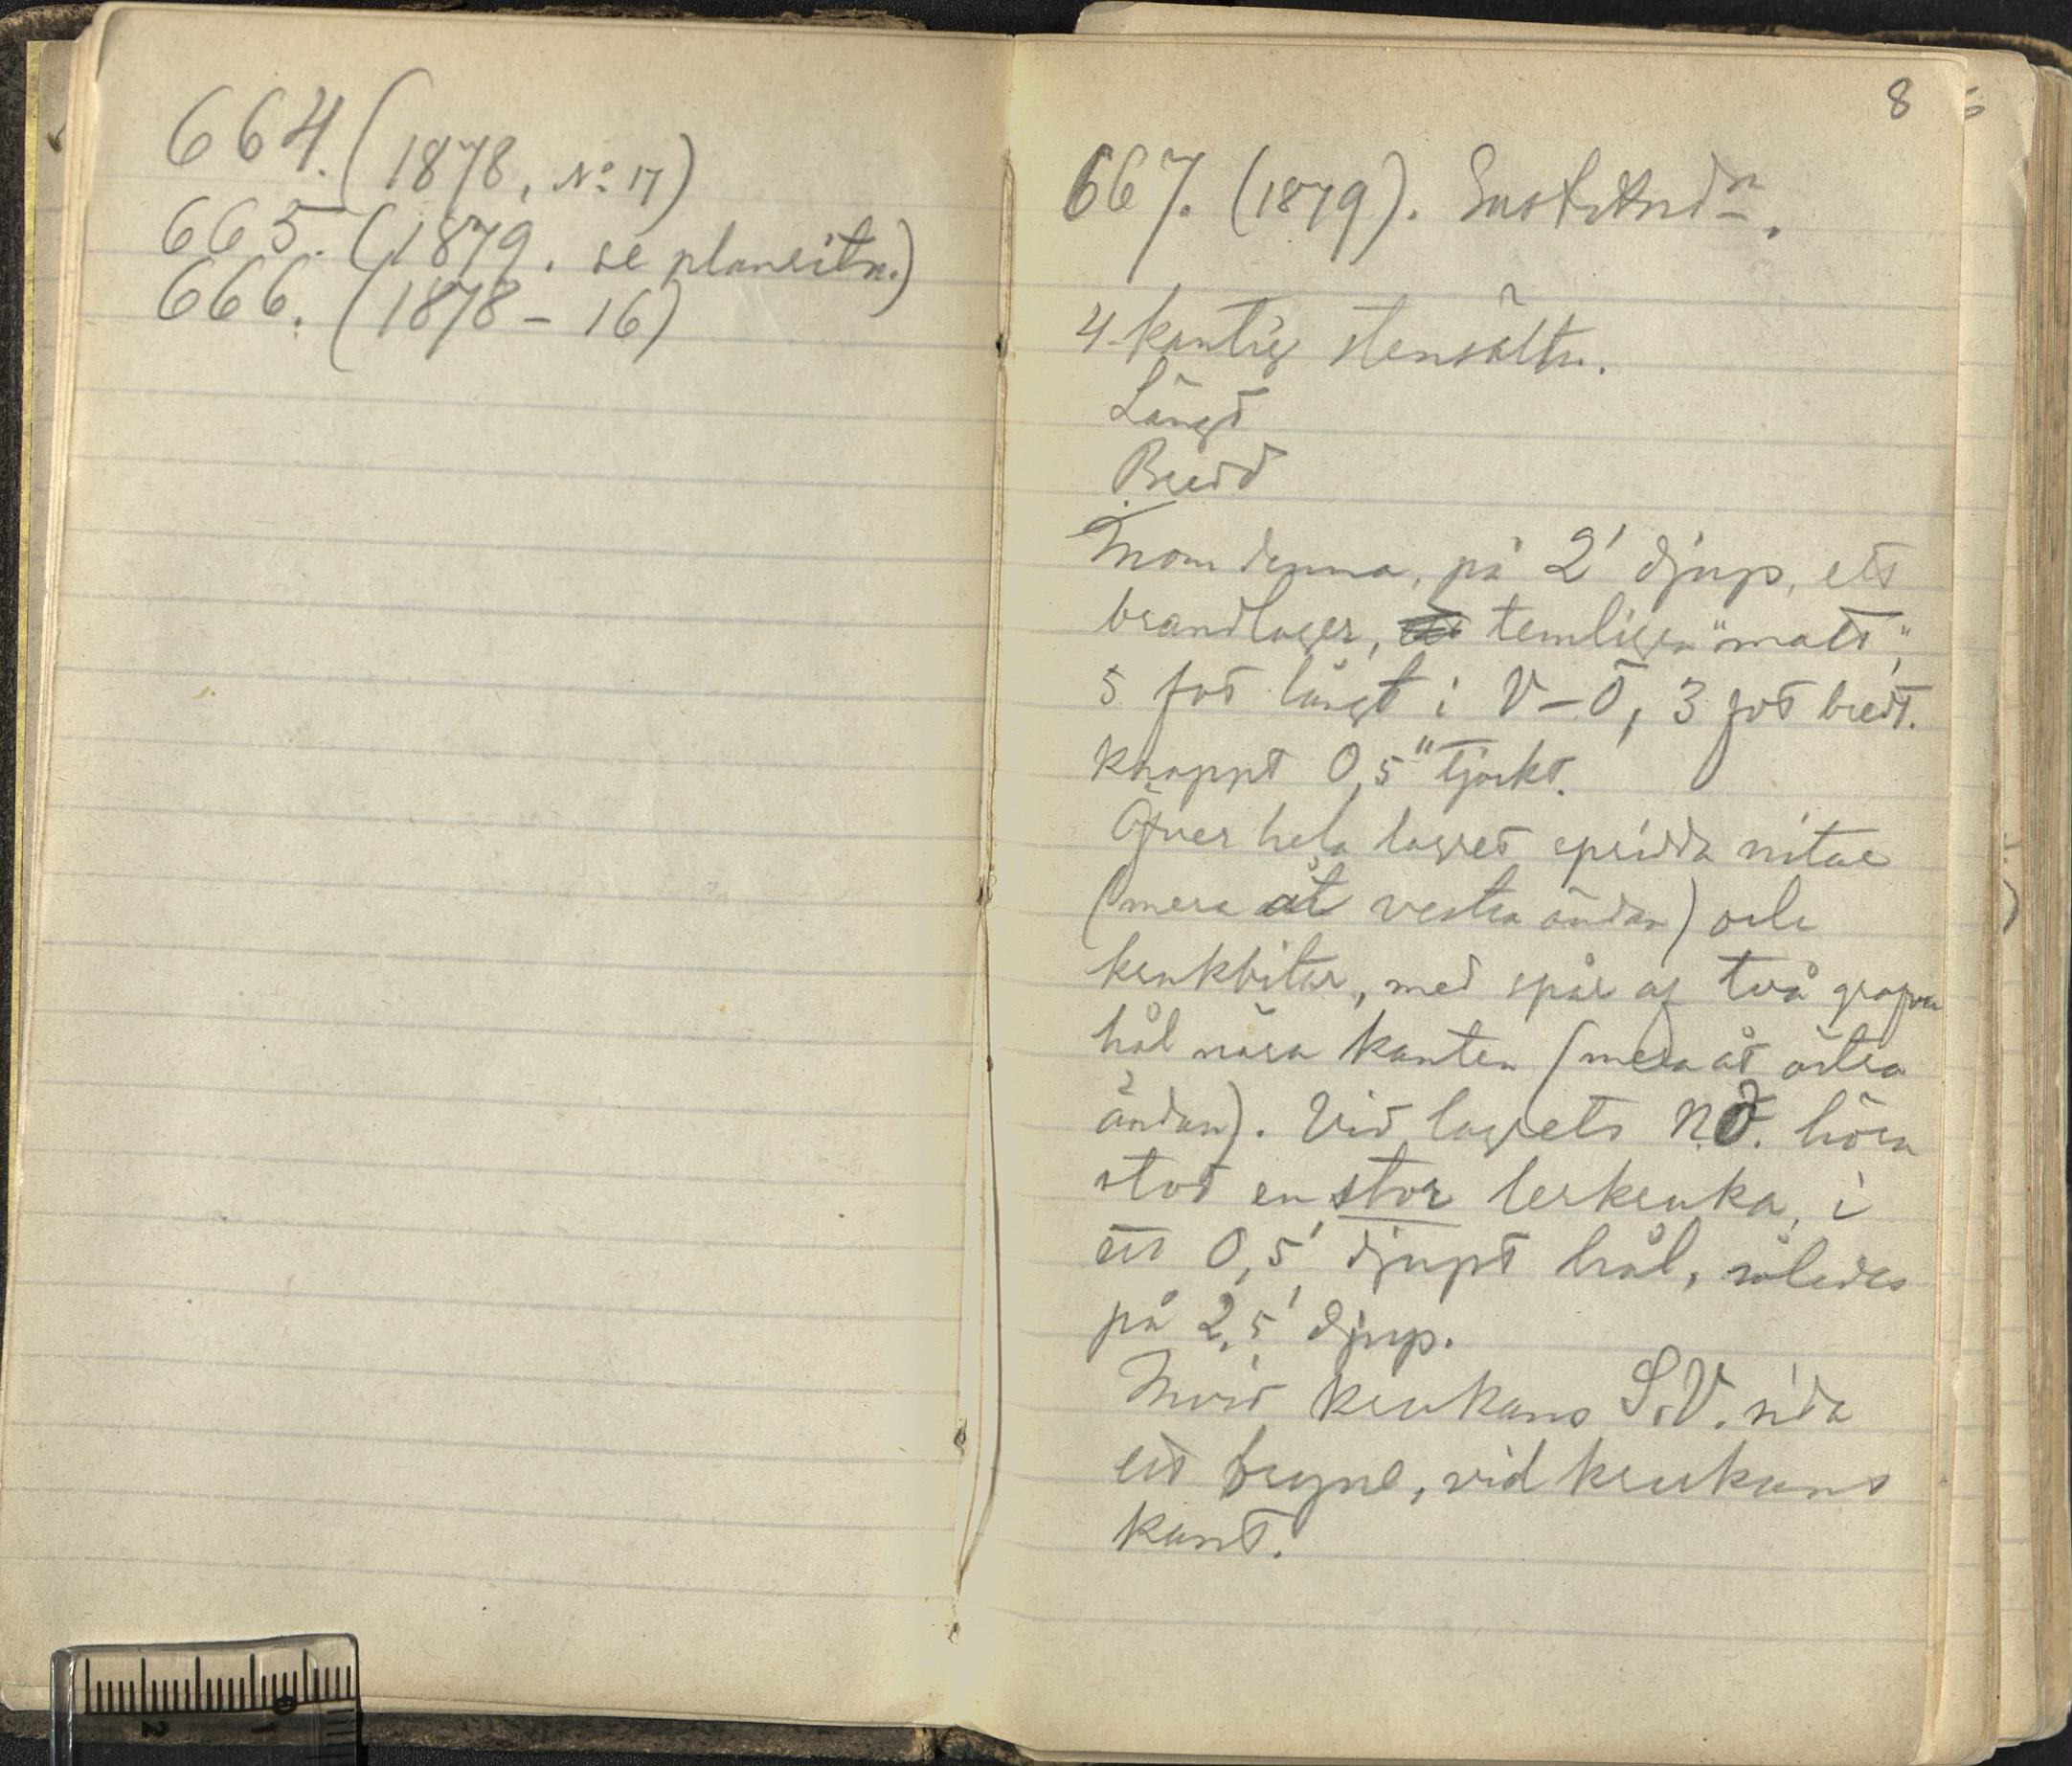 664. (1878, No 17)
665. (1879. se planritn.)
666. (1878 - 16)
8
667. (1879).
4-kantig stensättn.
Längd
Bredd
Inom denna, på 2' djup, ett
brandlager, ett temligen "matt",
5 fot långt i V-Ö, 3 fot bredt.
knappt 0,5" tjockt.
Öfver hela lagret spridda nitar
(mera åt vestra ändan) och
krukbitar, med spår af två grofva
hål nära kanten (mera åt östra
ändan). Vid lagrets N.Ö. hörn
stod en stor lerkruka, i
ett 0,5' djupt hål, således
på 2,5' djup.
Invid krukans S.V. sida
ett bryne, vid krukans
kant.